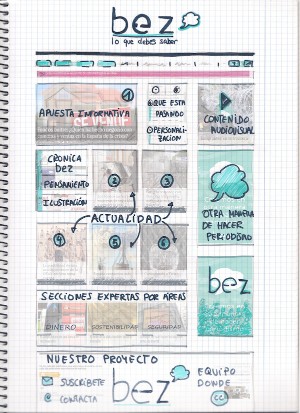 bez
lo que debes saber
APUESTA INFORMATIVA
1
QUE ESTA
PASANDO
PERSONALI-
ZACION
CONTENIDO
AUDIOVISUAL
CRONICA
bez
PENSAMIENTO
ILUSTRACIÓN
2
3
ACTUALIDAD
4
5
6
OTRA MANERA
DE HACER
PERIODISMO
bez
SECCIONES EXPERTAS POR ÁREAS
DINERO
SOSTENIBILIDAD
SEGURIDAD
NUESTRO PROYECTO
SUSCRÍBETE
@ CONTACTA
bez
EQUIPO
DONDE
cc